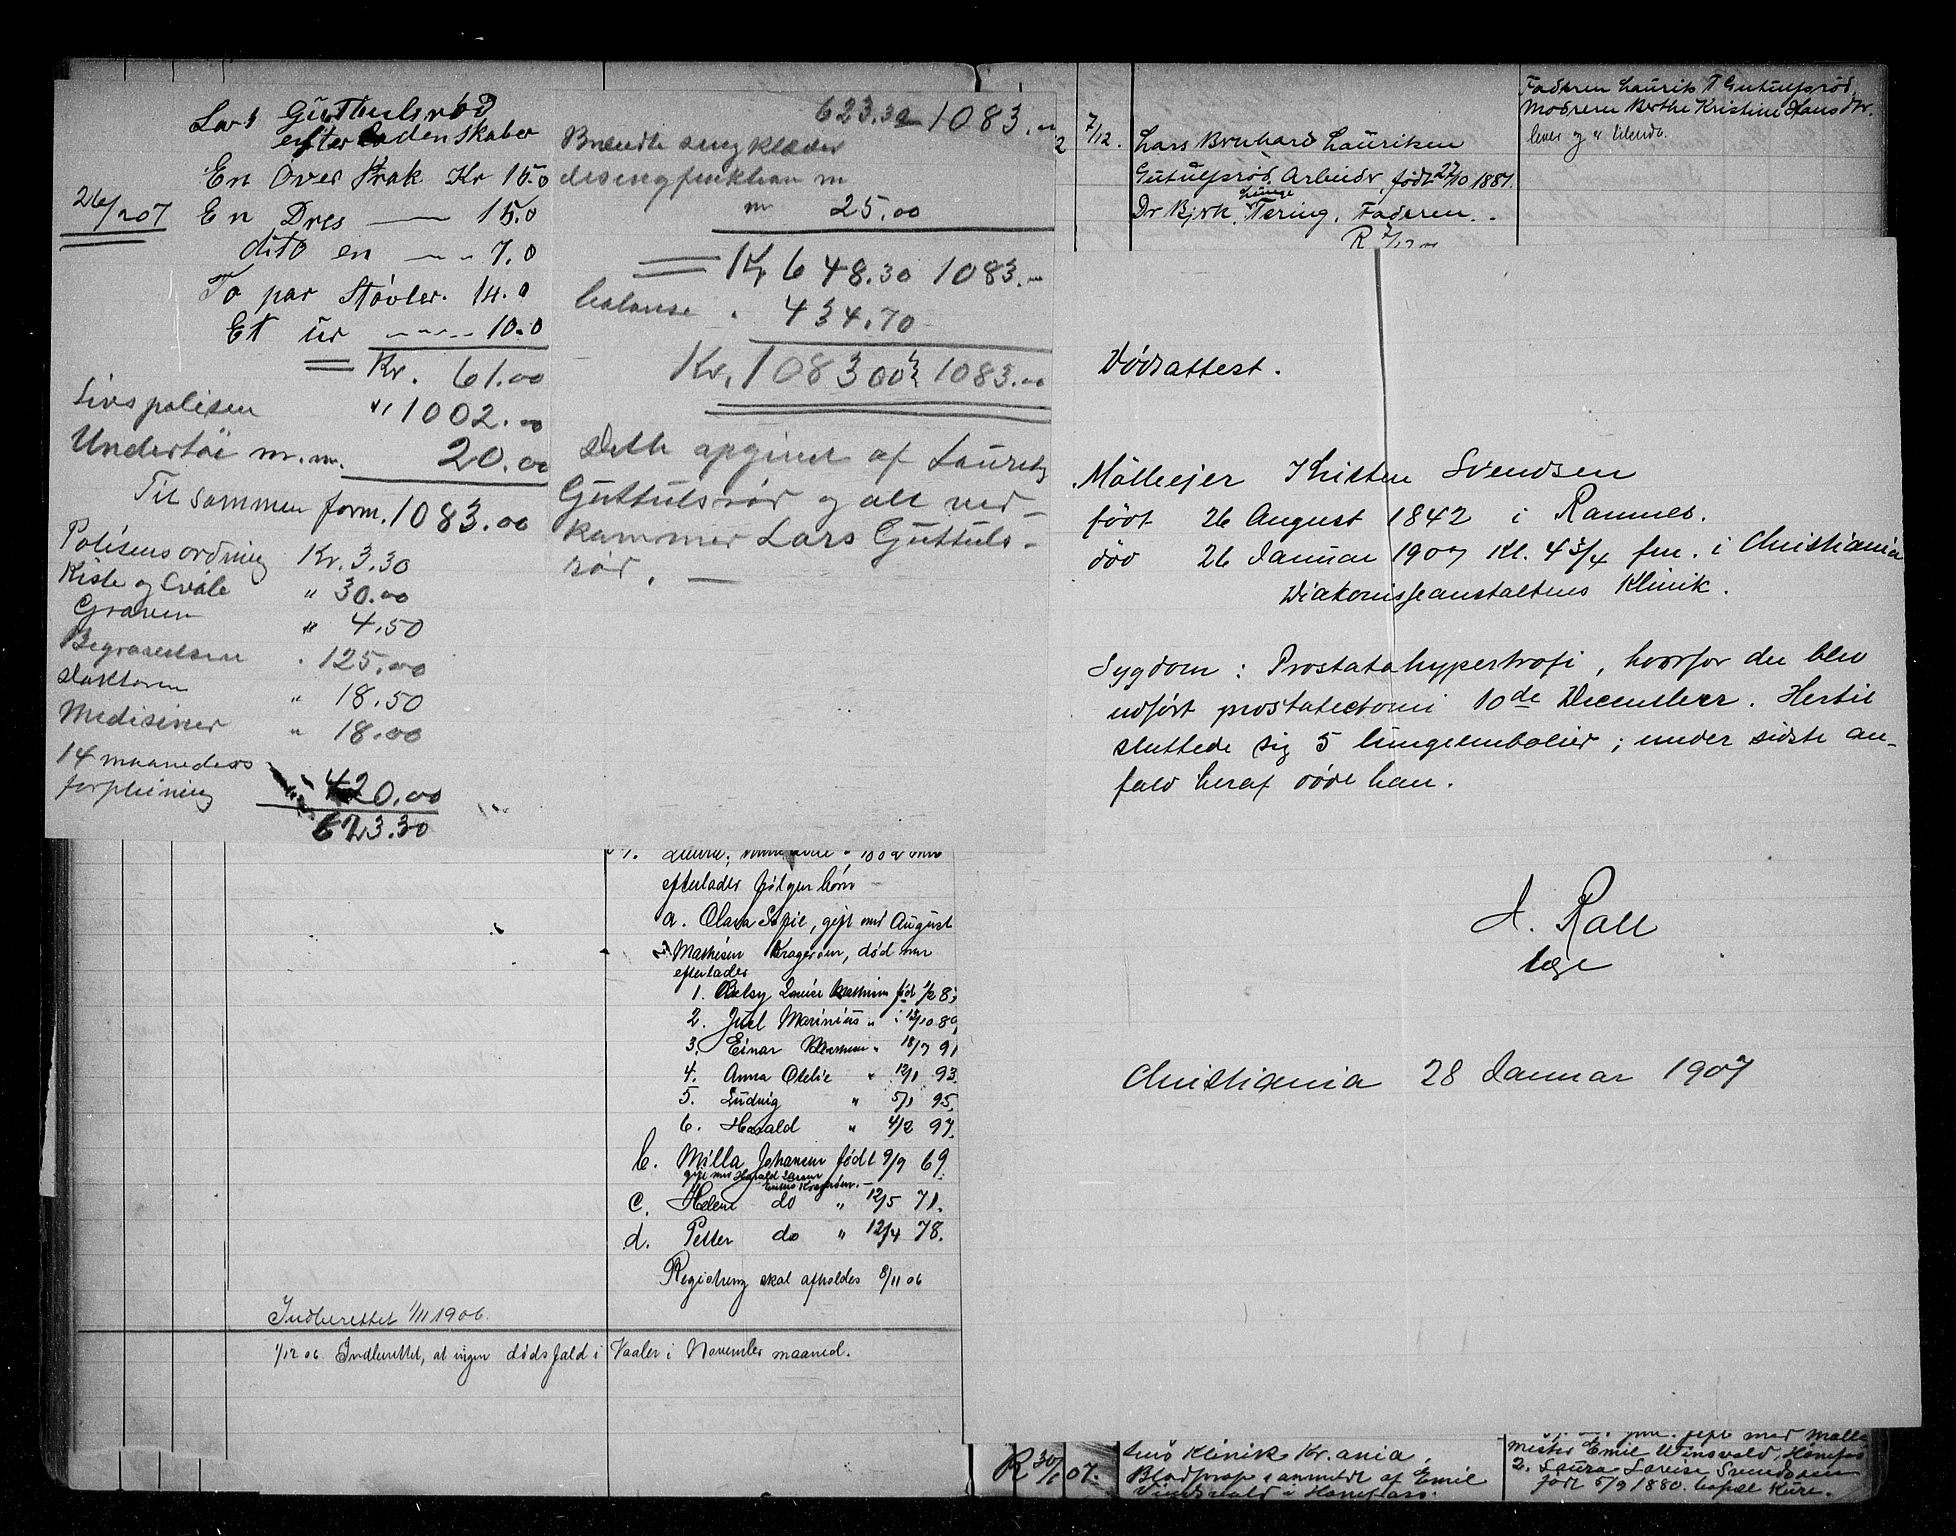 Lars Guthulsrød
efter ladenskaber
En Over Frak Kr 15.0
26/1 207 En Dres — 15.0
dito en — 7.0
To par Støvler. 14.0
Et ur — 10.0
Kr. 61.00
Livspolisen " 1002.00
Undertøi m.m. 20.00
Til sammen form. 1083.00
Polisens ordning Kr. 3.30
Kiste og Svøle " 30.00
Graven " 4.50
Begravelsen " 125.00
doktoren " 18.50
Medisiner " 18.00
14 maaneders
forpleining 420.00
623.30
623.30 1083.00
Brændte sengklæder
desingfinktion m
m 25.00
Kr 648.30 1083.—
balanse . 434.70
Kr. 1083 00 1083.00
Dette opgivet af Laurits
Guttulsrød og alt ved-
kommer Lars Guttuls-
rød. —
2 7/12. Lars Bernhard Lauritsen
Gutulsrød. Arbeider, født 27/10 1887.
Dr Bjrk. Lunge Tæring. Faderen.
R 7/12
Faderen Laurits T Gutulsrød,
Moderen Berthe Kristine Hansdtr.
lever og er tilende.
Dødsattest.
Mølleejer Kristen Svendsen
født 26 August 1842 i Ramnes.
død 26 Januar 1907 Kl. 4 3/4 fm. i Christiania
Diakonisseanstaltens Klinik.
Sygdom: Prostatahypertrofi, hvorfor der blev
udført prostatectomi 10de December. Hertil
sluttede sig 5 lungeembolier; under sidste an-
fald heraf døde han.
A. Rall
læge
Christiania 28 Januar 1907
efterlader følgen børn
a. Clara Sofie, gift med August
Mathisen Kragerøen, død men
efterlader
1. Betsy Louise Mathisen
2. Juel Marinius " 12/10 89
3. Einar Mathisen " 18/7 91
4. Anna Otelie " 12/1 93.
5. Ludvig " 5/1 95.
6. Harald " 4/2 97.
b. Milla Johansen født 9/9 69.
gift med Harald Larsen
c. Helene do " 12/5 71.
d. Petter do " 12/4 78.
Registrering skal afholdes 8/11 06
Indberettet 1/11 1906.
1/12 06. Indberettet, at ingen dødsfald i Vaaler i November maaned.
R 30/1 07.
sens Klinik Kr.ania.
anmeldt af Emil
Vindsvald i Hønefoss.
gift med Mølle
mester Emil Winsvald, Hønefos
2. Laura Lovise Svendsen
født 5/9 1880.